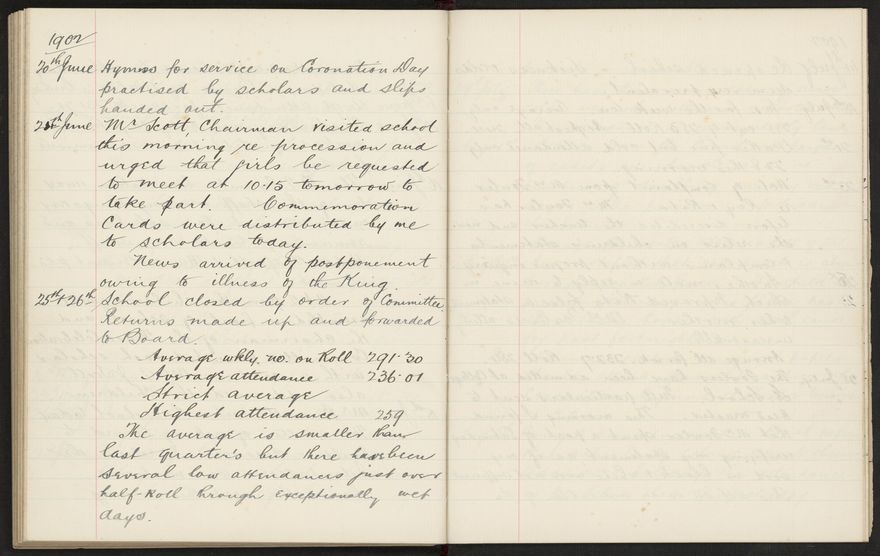 1902
20th June Hymns for service on Coronation Day
practised by scholars and slips
handed out.
25th June Mr Scott, Chairman visited school
this morning re procession and
urged that girls be requested
to meet at 10.15 tomorrow to
take part. Commemoration
Cards were distributed by me
to scholars today.
News arrived of postponement
owing to illness of the King.
25th + 26th School closed by order of Committee.
Returns made up and forwarded
to Board.
Average wkly. no. on Roll 291.30
Average attendance 236.01
Strict average
Highest attendance 259
The average is smaller than
last quarter's but there have been
several low attendances just over
half-Roll through exceptionally wet
days.